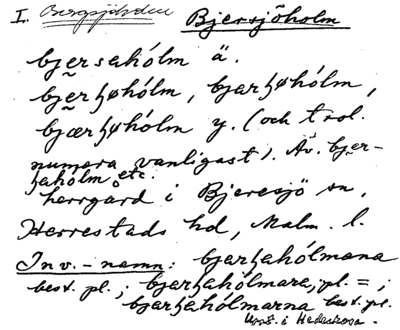 I. Bjersjöholm
bjersahólm ä.
bjerʒøhólm, bjarʒøhólm,
bjærʒøhólm y. (och trol.
numera vanligast). Äv. bjer-
ʒahólm etc.
herrgård i Bjeresjö sn,
Herrestads hd, Malm. l.
Inv.-namn: bjarʒahólmana
best. pl.; bjarʒahólmara, pl. =;
bjarʒahólmarna best. pl.
Uppt. i Hedeskoga.